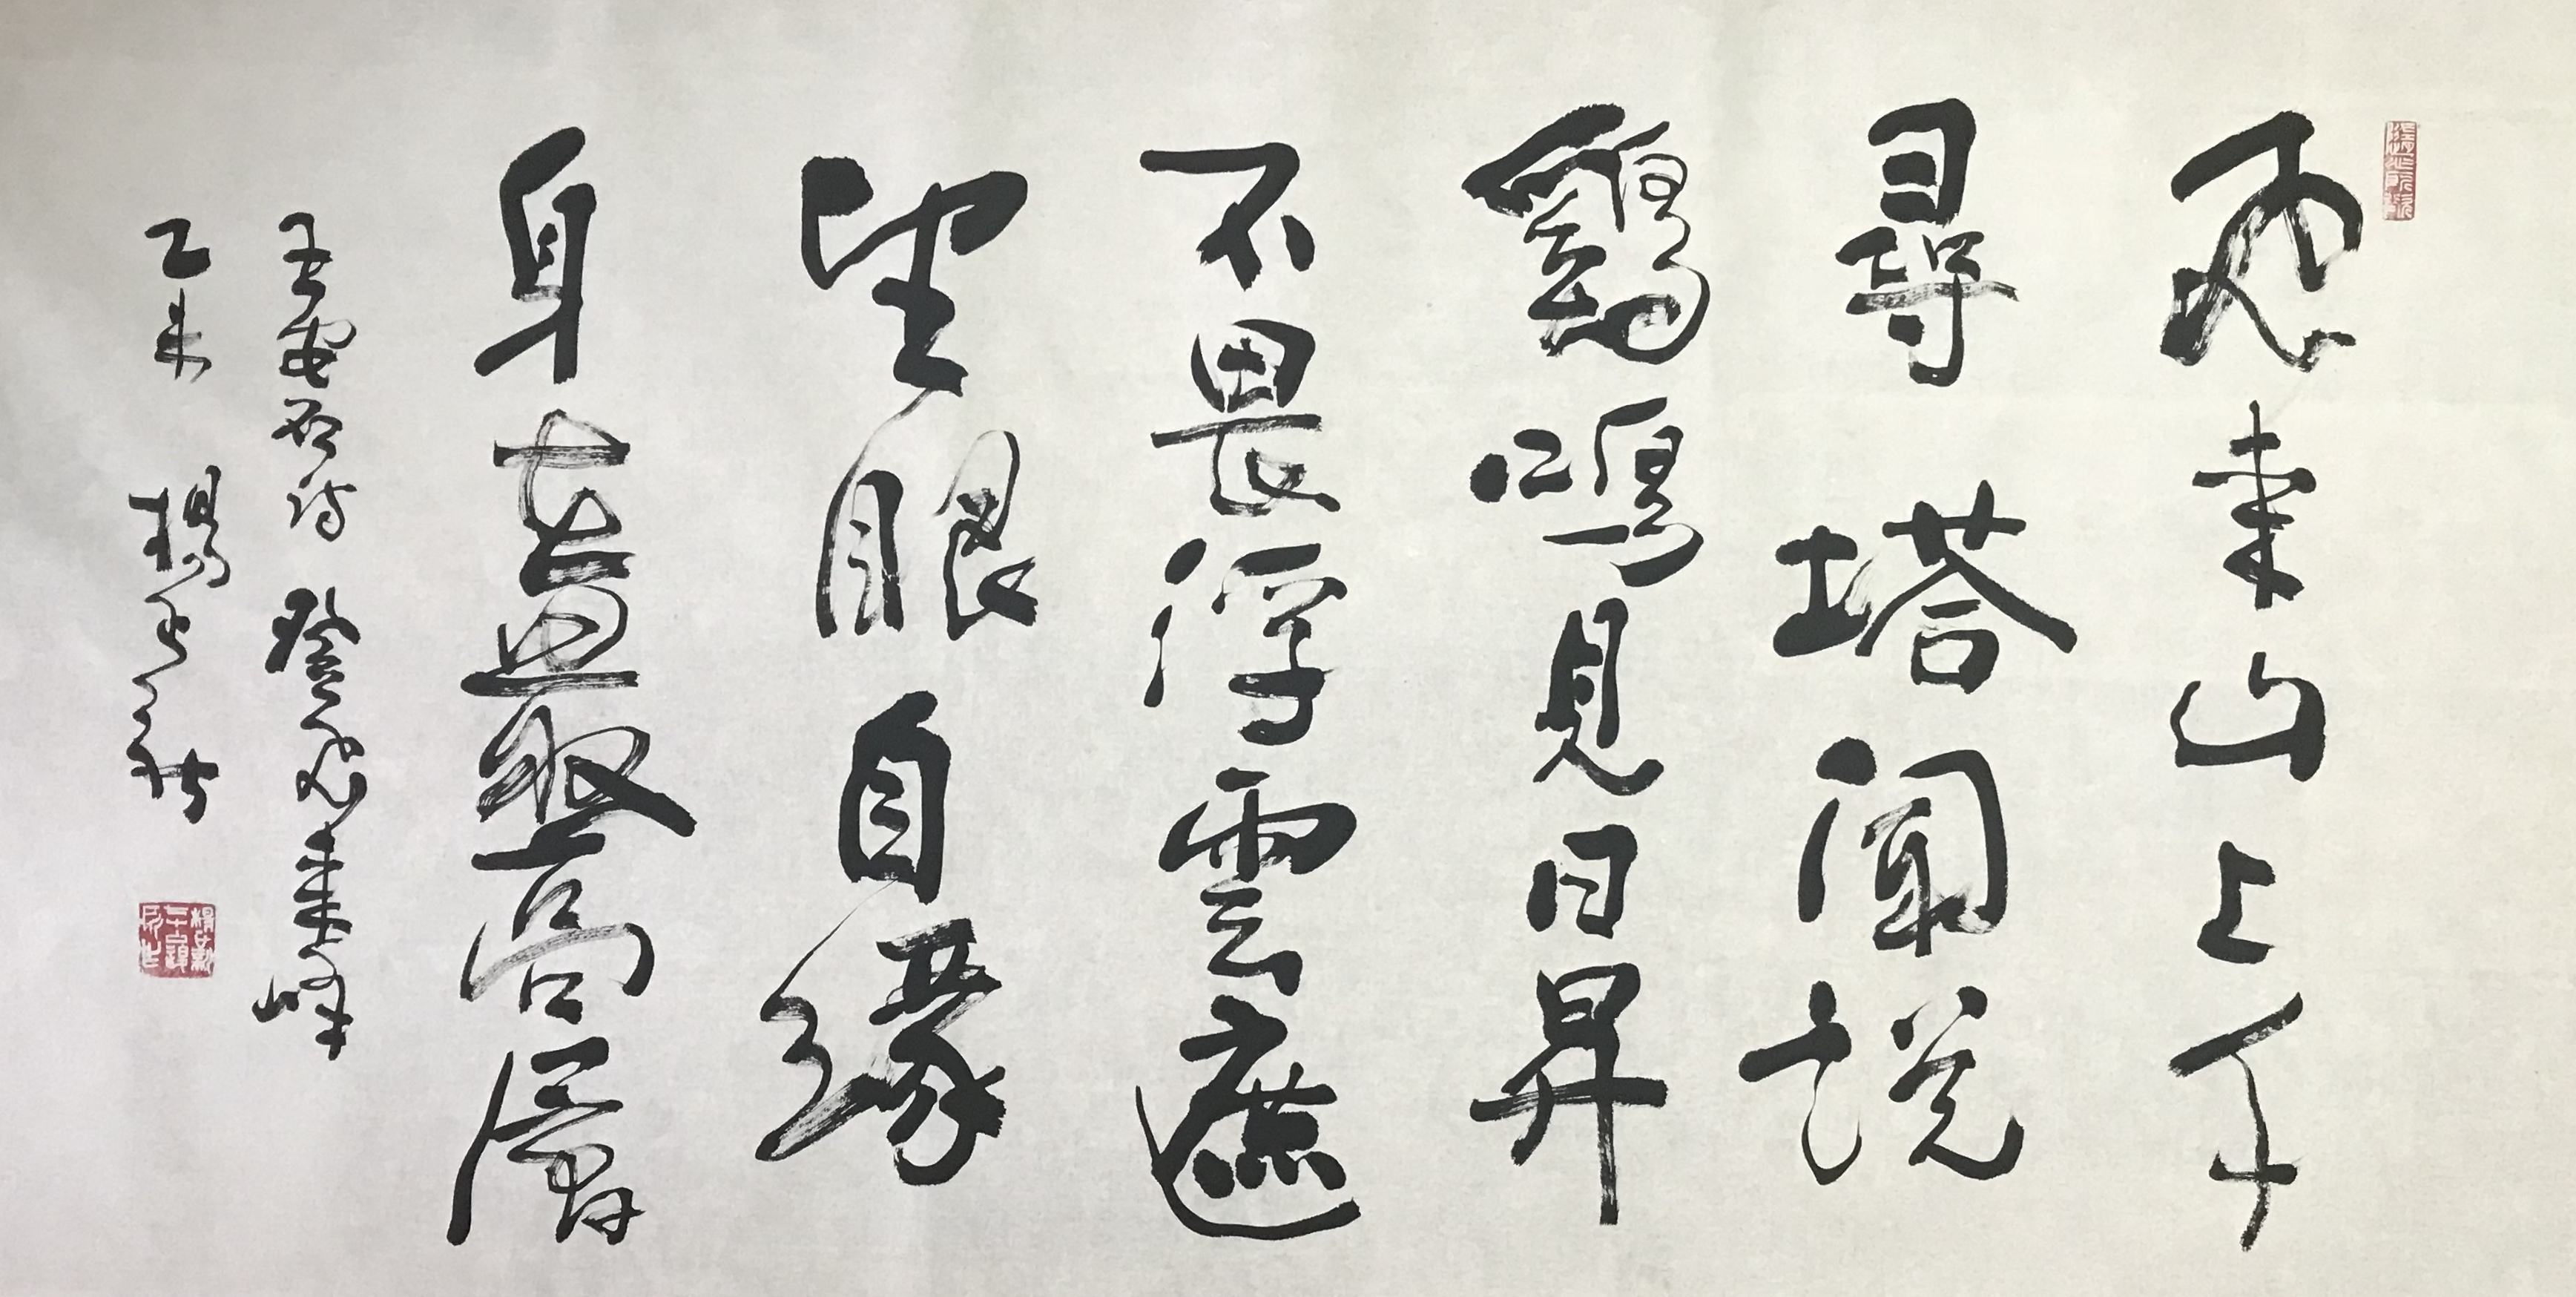 飛來山上千
尋塔聞說
鷄鳴見日昇
不畏浮雲遮
望眼自緣
身在最高層
王安石詩 登飛來峰
乙未 楊